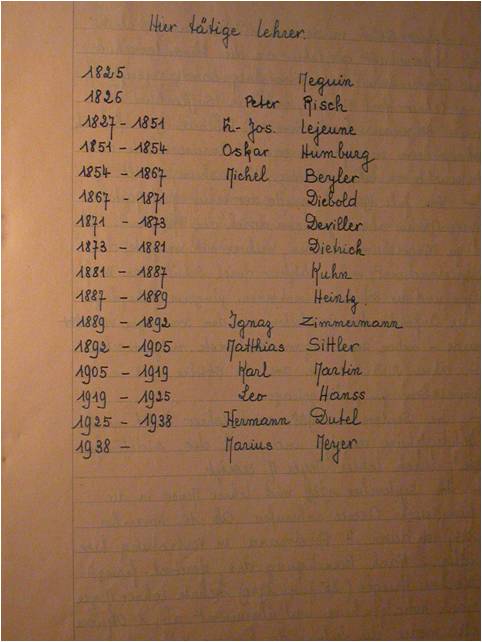 Hier tätige Lehrer.
1825 Meguin
1826 Peter Risch
1827 - 1851 K.- Jos. Lejeune
1851 - 1854 Oskar Humburg
1854 - 1867 Michel Beyler
1867 - 1871 Diebold
1871 - 1873 Deviller
1873 - 1881 Dietrich
1881 - 1887 Kuhn
1887 - 1889 Heintz
1889 - 1892 Ignaz Zimmermann
1892 - 1905 Matthias Sittler
1905 - 1919 Karl Martin
1919 - 1925 Leo Hanss
1925 - 1938 Hermann Dutel
1938 - Marius Meyer